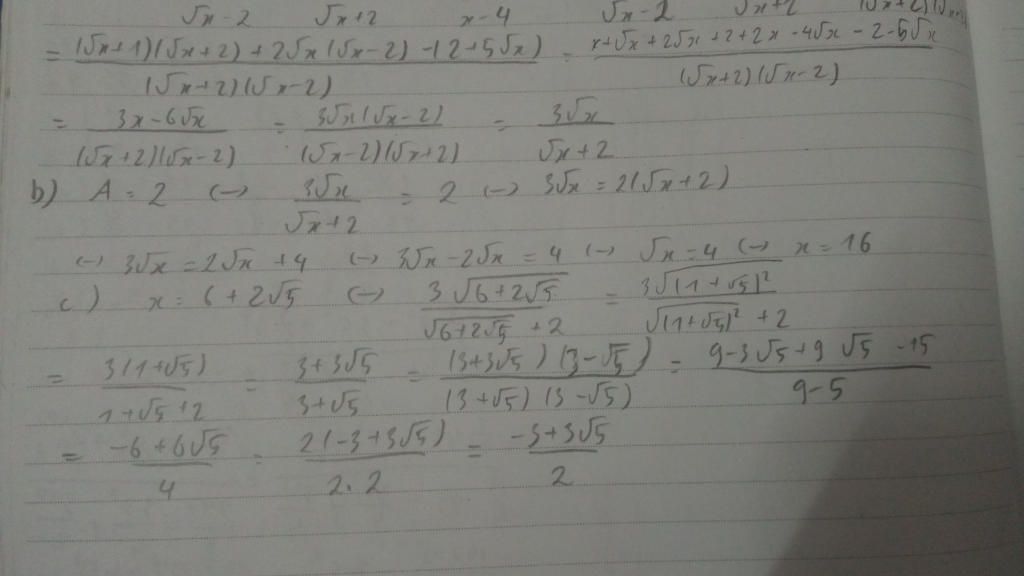 √x-2 √x+2 x-4 √x-2 √x+2 (√x+2)(√x-2)
= ((√x+1)(√x+2) + 2√x(√x-2) - (2+5√x)) / ((√x+2)(√x-2)) = (x+√x+2√x+2+2x-4√x-2-5√x) / ((√x+2)(√x-2))
= (3x-6√x) / ((√x+2)(√x-2)) = (3√x(√x-2)) / ((√x-2)(√x+2)) = (3√x) / (√x+2)
b) A = 2 (-) (3√x) / (√x+2) = 2 (-) 3√x = 2(√x+2)
(-) 3√x = 2√x +4 (-) 3√x - 2√x = 4 (-) √x = 4 (-) x = 16
c) x = 6+2√5 (-) (3√(6+2√5)) / (√(6+2√5) + 2) = (3√((1+√5)²)) / (√((1+√5)²) + 2)
= (3(1+√5)) / (1+√5+2) = (3+3√5) / (3+√5) = ((3+3√5)(3-√5)) / ((3+√5)(3-√5)) = (9-3√5+9√5-15) / (9-5)
= (-6+6√5) / 4 = (2(-3+3√5)) / (2.2) = (-3+3√5) / 2